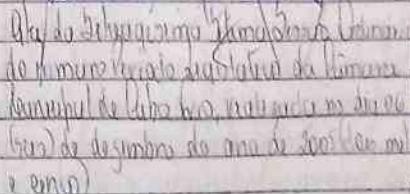 Ata da Setuagésima Sessão
do Primeiro Período Legislativo da Câmara
Municipal de Cabo Frio, realizada no dia 06
(seis) de dezembro do ano de 2005 (dois mil
e cinco)